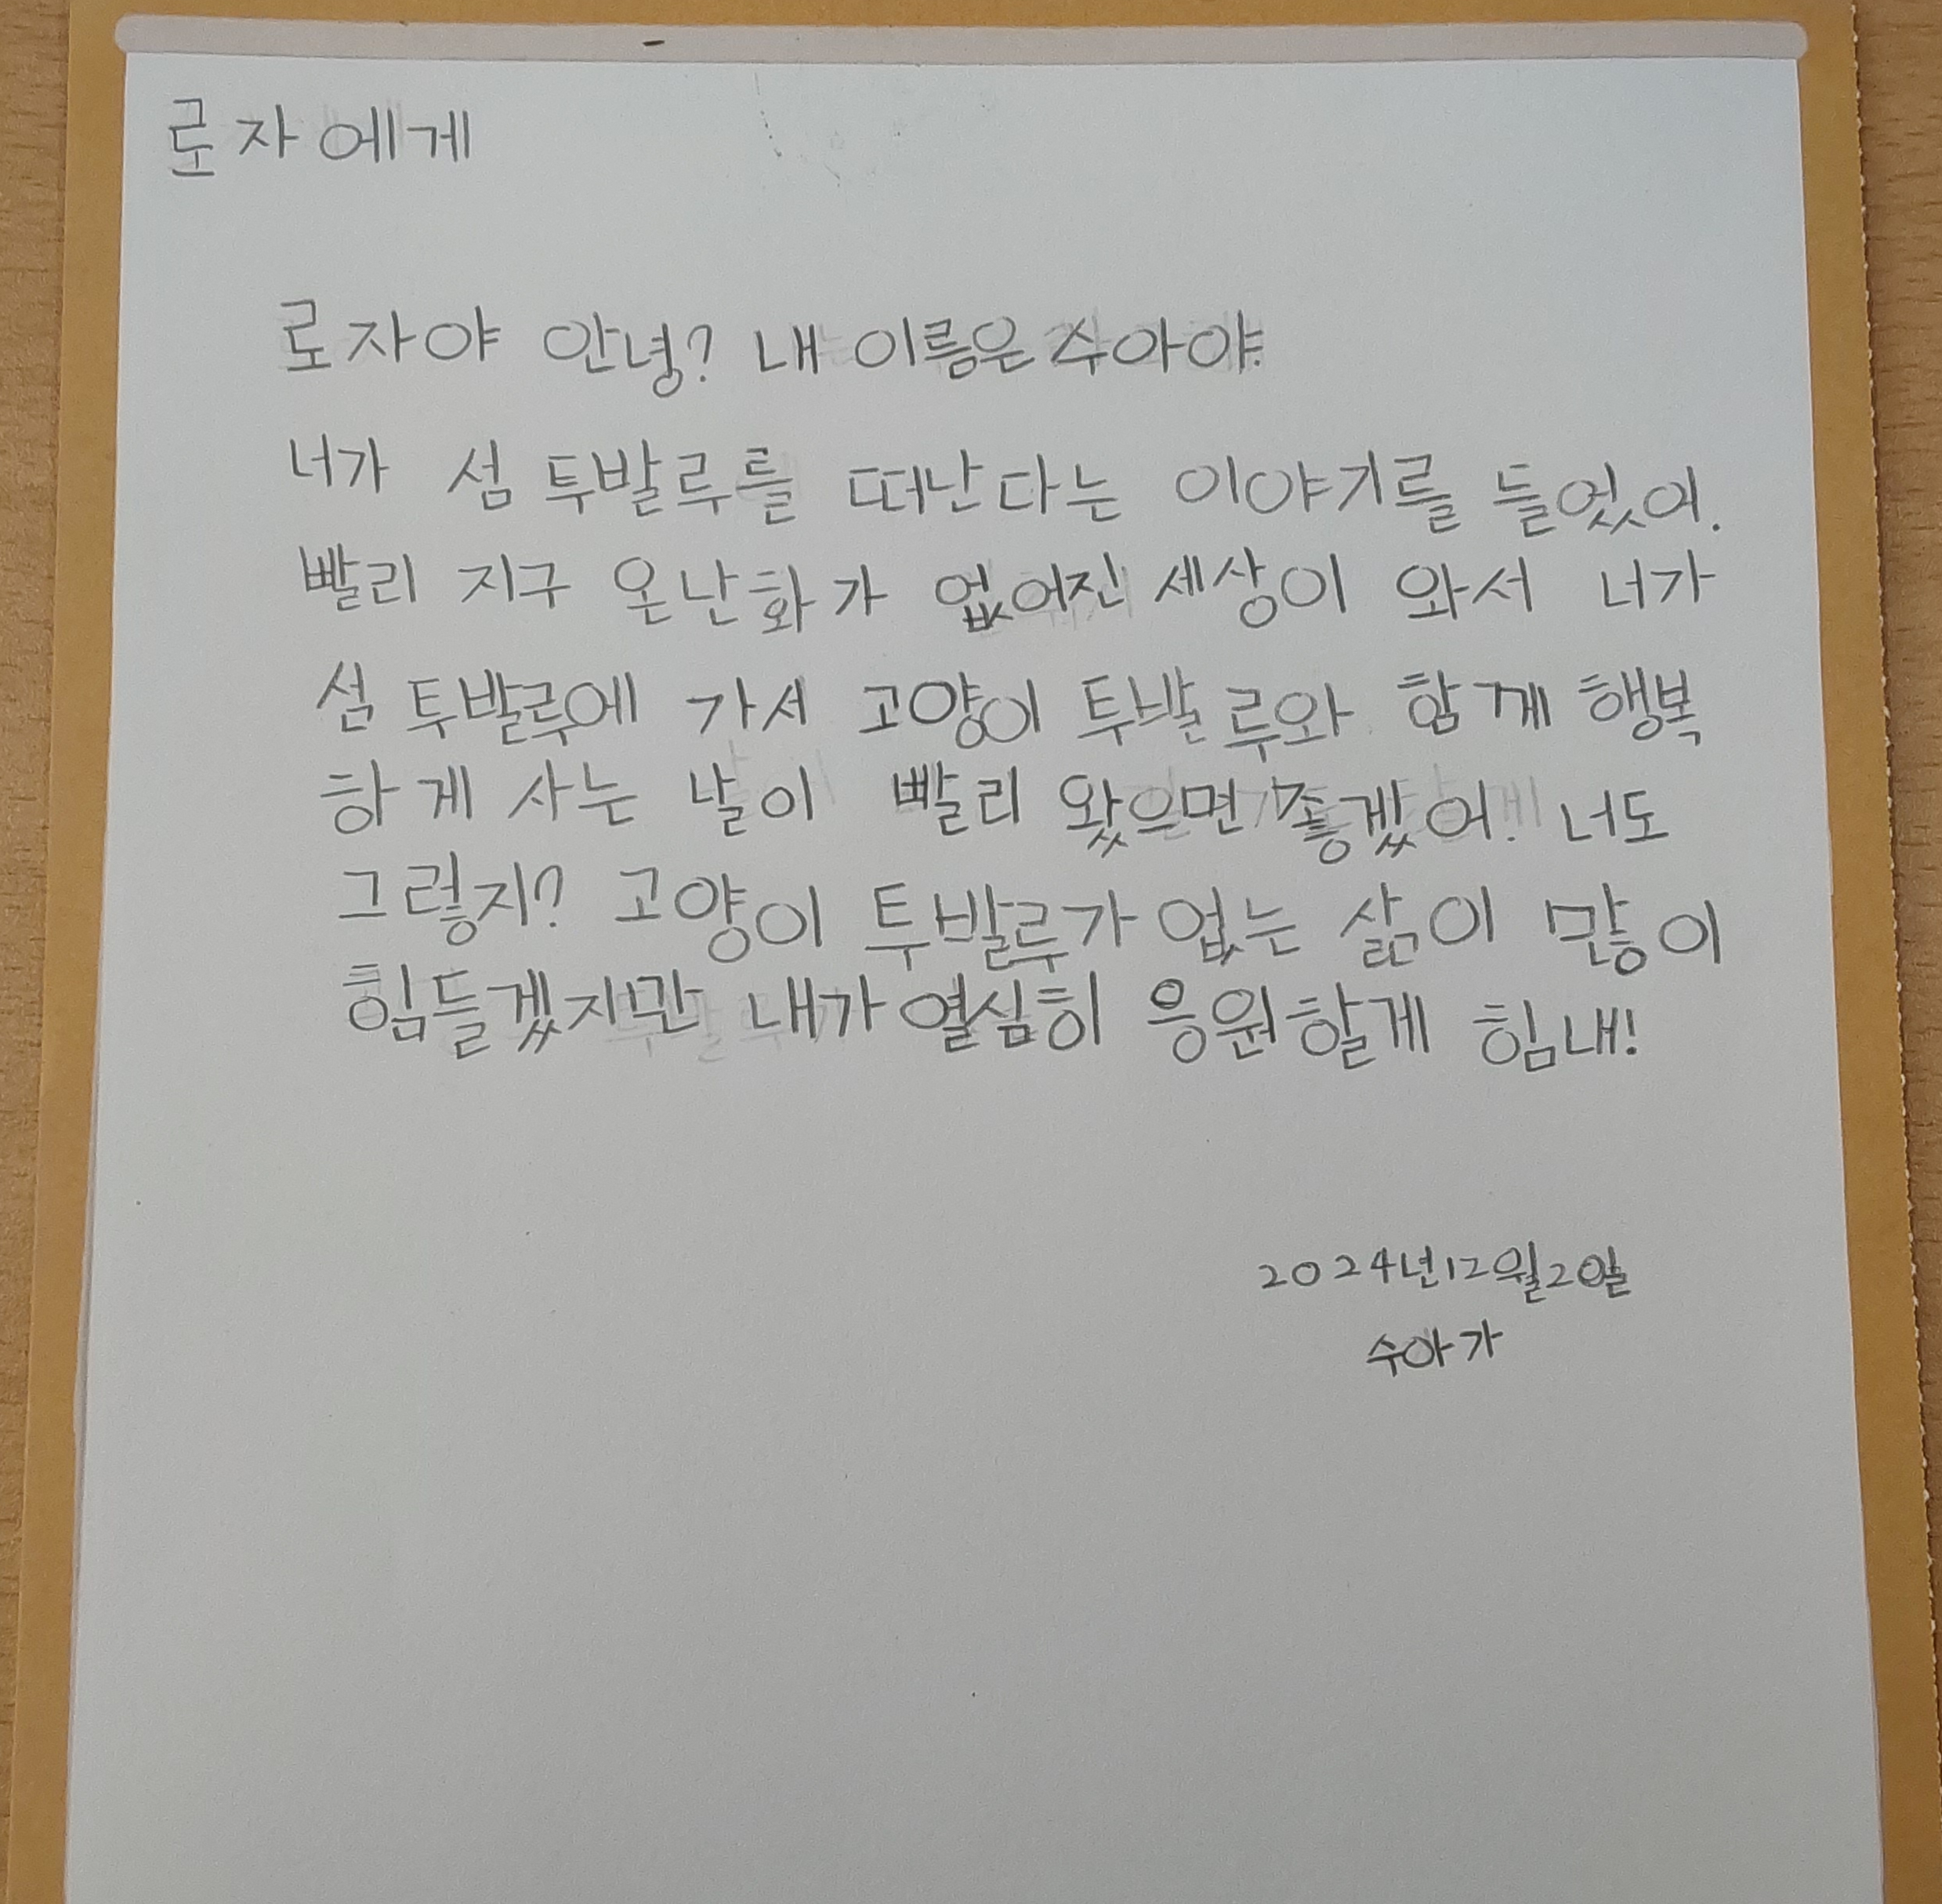 로자에게
로자야 안녕? 내 이름은 수아야.
너가 섬 투발루를 떠난다는 이야기를 들었어.
빨리 지구 온난화가 없어진 세상이 와서 너가
섬 투발루에 가서 고양이 투발루와 함께 행복
하게 사는 날이 빨리 왔으면 좋겠어. 너도
그렇지? 고양이 투발루가 없는 삶이 많이
힘들겠지만 내가 열심히 응원할게 힘내!
2024년12월20일
수아가